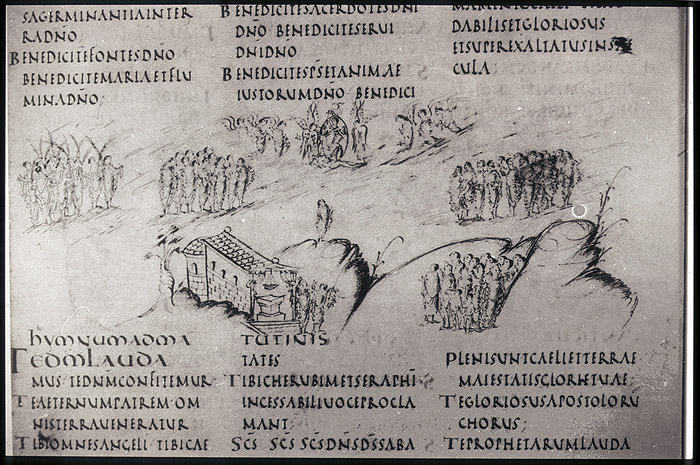 SAGERMINANTIAINTER
RADÑO
BENEDICITEFONTESDÑO
BENEDICITEMARIAETFLU
MINADÑO
BENEDICITESACERDOTESDNI
DÑO BENEDICITESERUI
DNIDÑO
BENEDICITESPSETANIMAE
IUSTORUMDÑO BENEDICI
DABILISETGLORIOSUS
ETSUPEREXALTATUSINSAE
CULA
hYMNUMADMA
TEDMLAUDA
MUS TEDNMCONFITEMUR
TEAETERNUMPATREM OM
NISTERRAUENERATUR
TIBIOMNESANGELI TIBICAE
TUTINIS
TATES
TIBICHERUBIMETSERAPHI
INCESSABILIUOCEPROCLA
MANT
SCS SCS SCSDNSDSSABA
PLENISUNTCAELIETTERRAE
MAIESTATISGLORIAETUAE;
TEGLORIOSUSAPOSTOLORU
CHORUS;
TEPROPHETARUMLAUDA